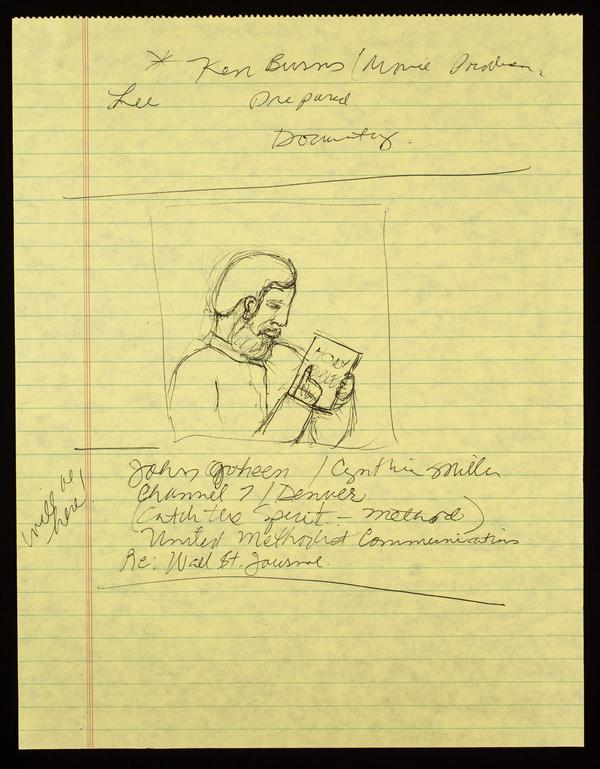 * Ken Burns / Movie
Lee Prepared
John Goheen / Cynthia Miller
Channel 7 / Denver
(Catch the Spirit - method)
United Methodist Communications
Re: Wall St. Journal.
will be
here!
HOLY